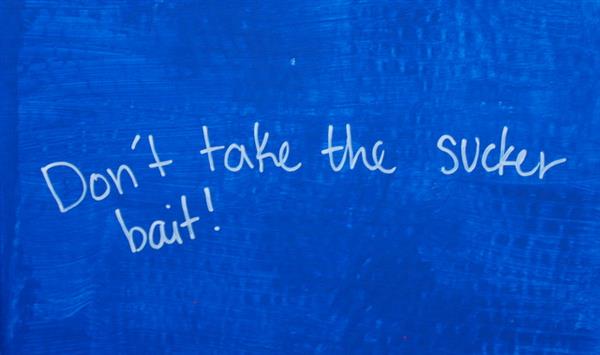 Don't take the sucker
bait!